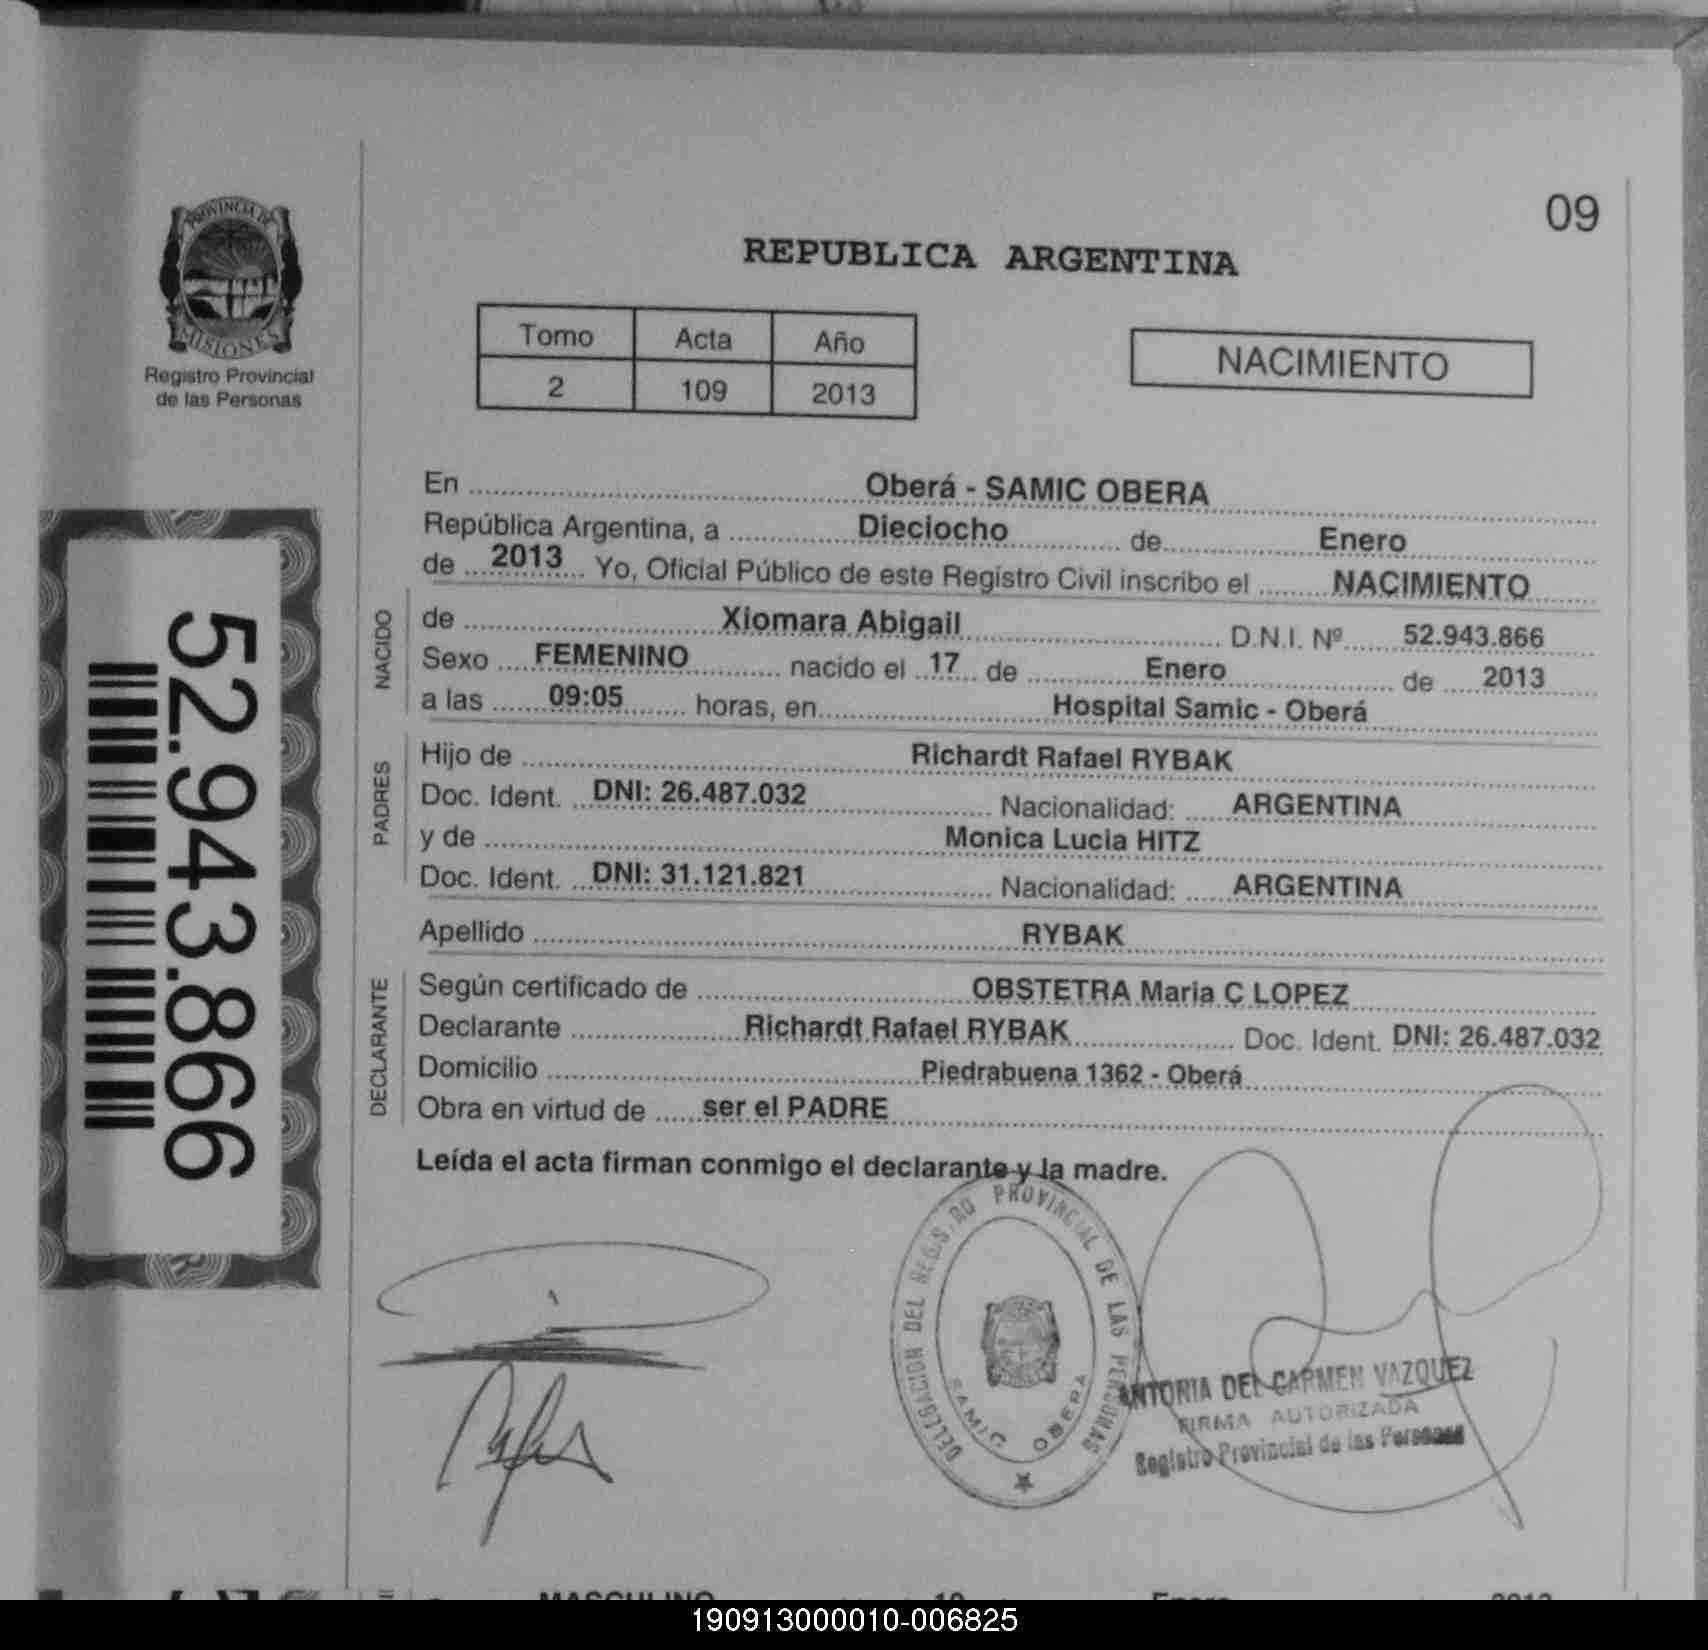 09
PROVINCIA DE
MISIONES
Registro Provincial
de las Personas
REPUBLICA ARGENTINA
Tomo Acta Año
2 109 2013
NACIMIENTO
52.943.866
En Oberá - SAMIC OBERA
República Argentina, a Dieciocho de Enero
de 2013 Yo, Oficial Público de este Registro Civil inscribo el NACIMIENTO
NACIDO
de Xiomara Abigail D.N.I. Nº 52.943.866
Sexo FEMENINO nacido el 17 de Enero de 2013
a las 09:05 horas, en Hospital Samic - Oberá
PADRES
Hijo de Richardt Rafael RYBAK
Doc. Ident. DNI: 26.487.032 Nacionalidad: ARGENTINA
y de Monica Lucia HITZ
Doc. Ident. DNI: 31.121.821 Nacionalidad: ARGENTINA
Apellido RYBAK
DECLARANTE
Según certificado de OBSTETRA Maria C LOPEZ
Declarante Richardt Rafael RYBAK Doc. Ident. DNI: 26.487.032
Domicilio Piedrabuena 1362 - Oberá
Obra en virtud de ser el PADRE
Leída el acta firman conmigo el declarante y la madre.
DELEGACION DEL REGISTRO PROVINCIAL DE LAS PERSONAS
SAMIC OBERA
ANTORIA DEL CARMEN VAZQUEZ
FIRMA AUTORIZADA
Registro Provincial de las Personas
MASCULINO 10 Enero 2013
190913000010-006825